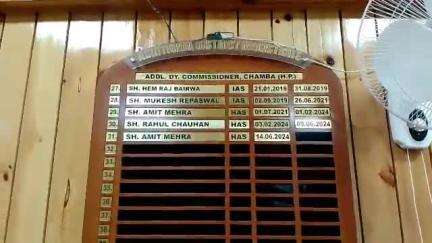 ADDL. DY. COMMISSIONER, CHAMBA (H.P.)
27. SH. HEM RAJ BAIRWA IAS 21.01.2019 31.08.2019
28. SH. MUKESH REPASWAL IAS 02.09.2019 26.06.2021
29. SH. AMIT MEHRA HAS 01.07.2021 01.02.2024
30. SH. RAHUL CHAUHAN HAS 03.02.2024 05.06.2024
31. SH. AMIT MEHRA HAS 14.06.2024
32.
33.
34.
35.
36.
37.
38.